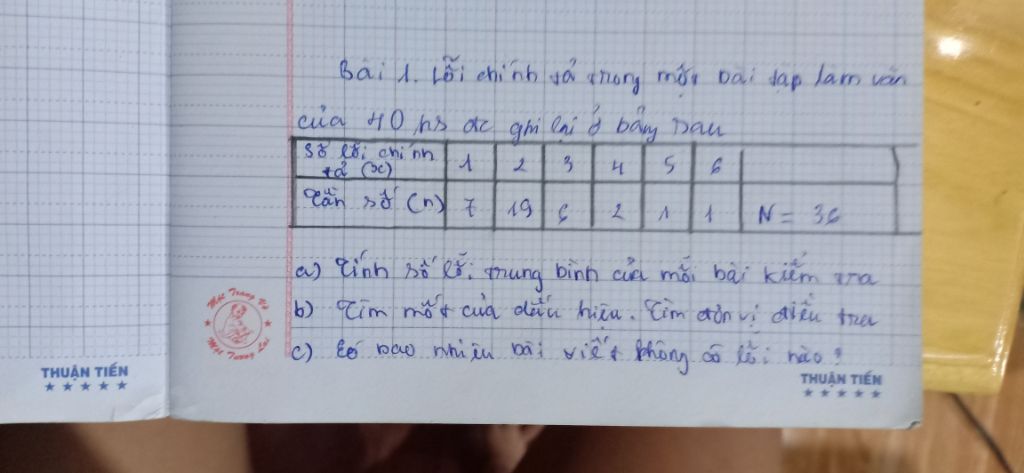 Bài 1. Lỗi chính tả trong một bài tập làm văn
của 40 hs đc ghi lại ở bảng sau
Số lỗi chính tả (x) 1 2 3 4 5 6
Tần số (n) 7 19 6 2 1 1 N = 36
a) Tính số lỗi trung bình của mỗi bài kiểm tra
b) Tìm mốt của dấu hiệu. Tìm đơn vị điều tra
c) Có bao nhiêu bài viết không có lỗi nào?
Một Trang Vở
Một Tương Lai
THUẬN TIẾN
THUẬN TIẾN